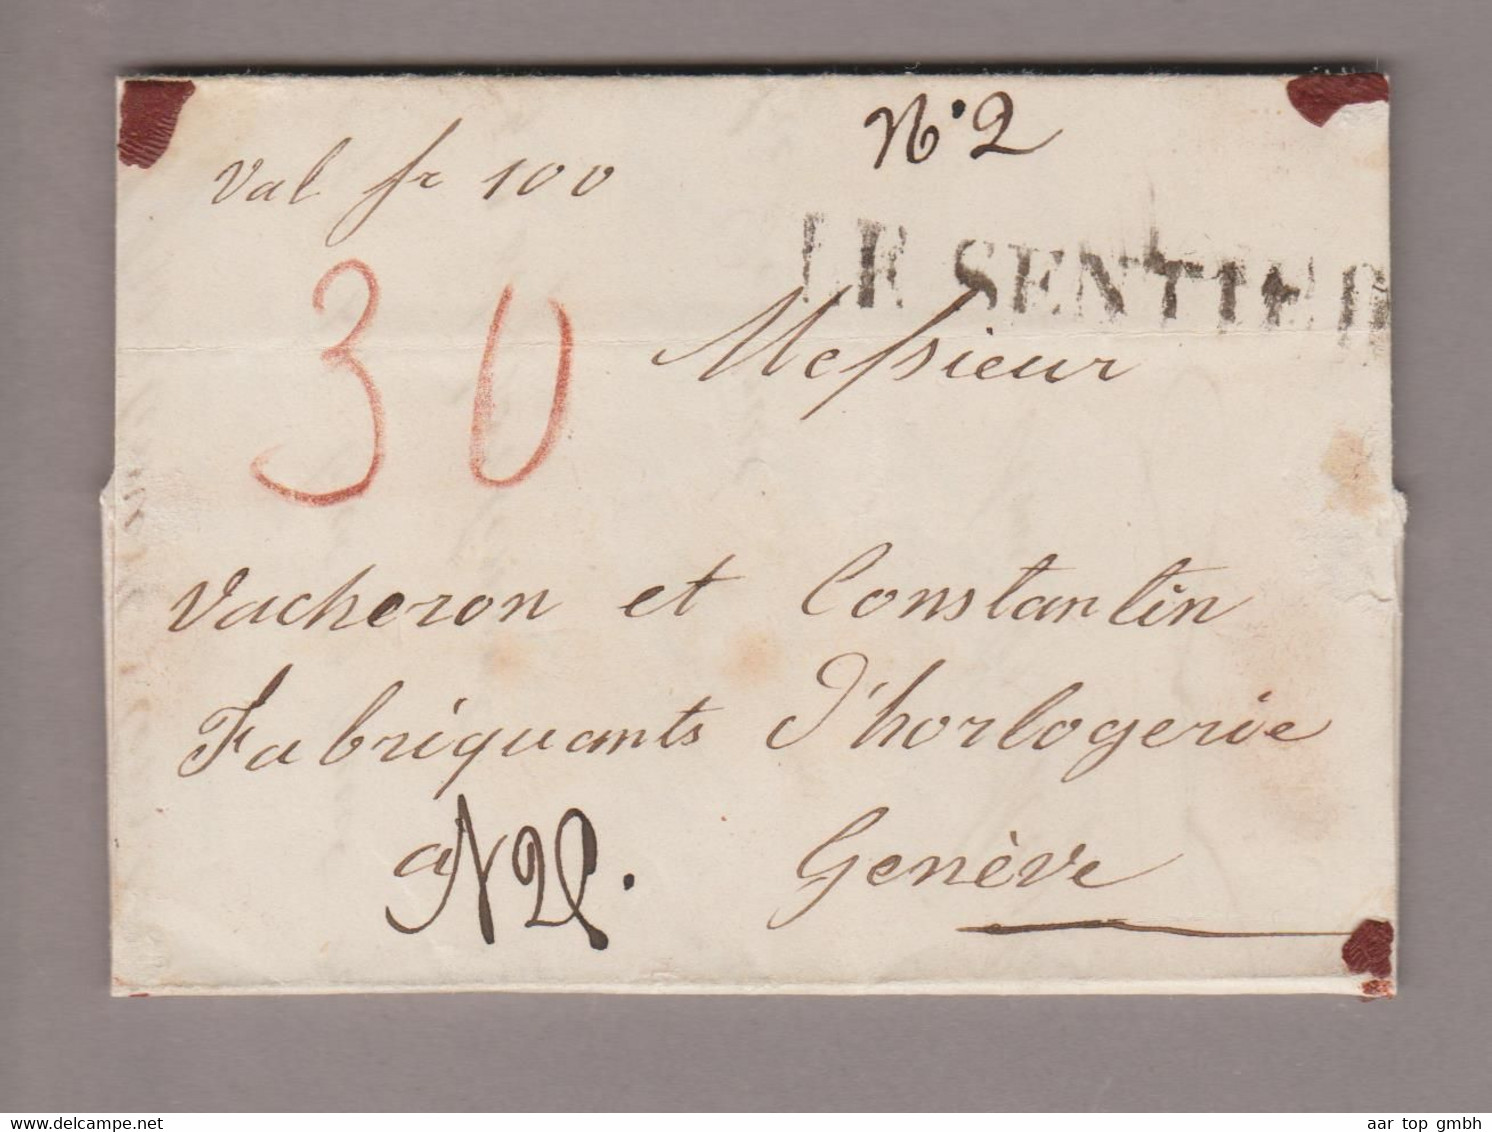 N.º 2
Val fr 100
LE SENTIER
30
Messieur
Vacheron et Constantin
Fabriquants d'horlogerie
a
Genève
www.delcampe.net
aar top gmbh